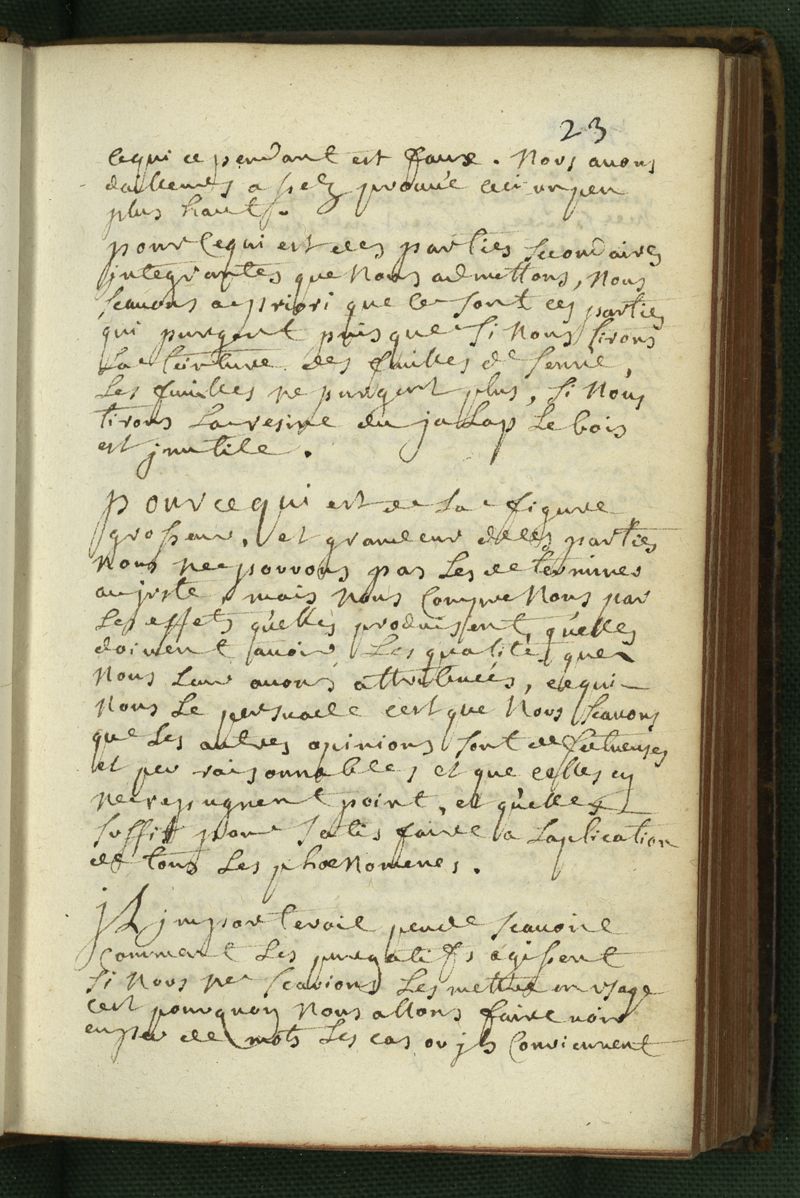 23
cequi ce pendant est faux. Nous auons
dailleurs assez prouué ceci un peu
plus haut.
pour cequi est des parties secondaires
integrantes que Nous admettons, Nous
scauons a priori que ce sont ces parties
qui purgent puis que si Nous tirons
La teinture des fuilles de senné,
Les fuilles ne purgent plus, si Nous
tirons La resine du jaLap Le bois
est jnutile.
pour ce qui est de La figure
grosseur, et grandeur de ces parties
Nous ne pouvons pas Les determiner
au juste, mais Nous comprenons par
Les effets qu'elles produisent, qu'elles
doivent auoir Les qualités que
Nous Leur auons attribueés, ce qui
Nous Le persuade c'est que Nous scauons
que Les autres opinions sont defectueuses
et peu raisonnables, et que celles cy
ne repugnent point, et qu'elles
suffit pour satis faire a Laplication
de tous Les phœnomenes.
jL jmporteroit peu de scauoir
comment Les purgatifs agissent
si Nous ne scavions Les mettre en vsage
c'est pourquoy Nous allons faire voir
en peu de mots Les cas ou jls conviennent